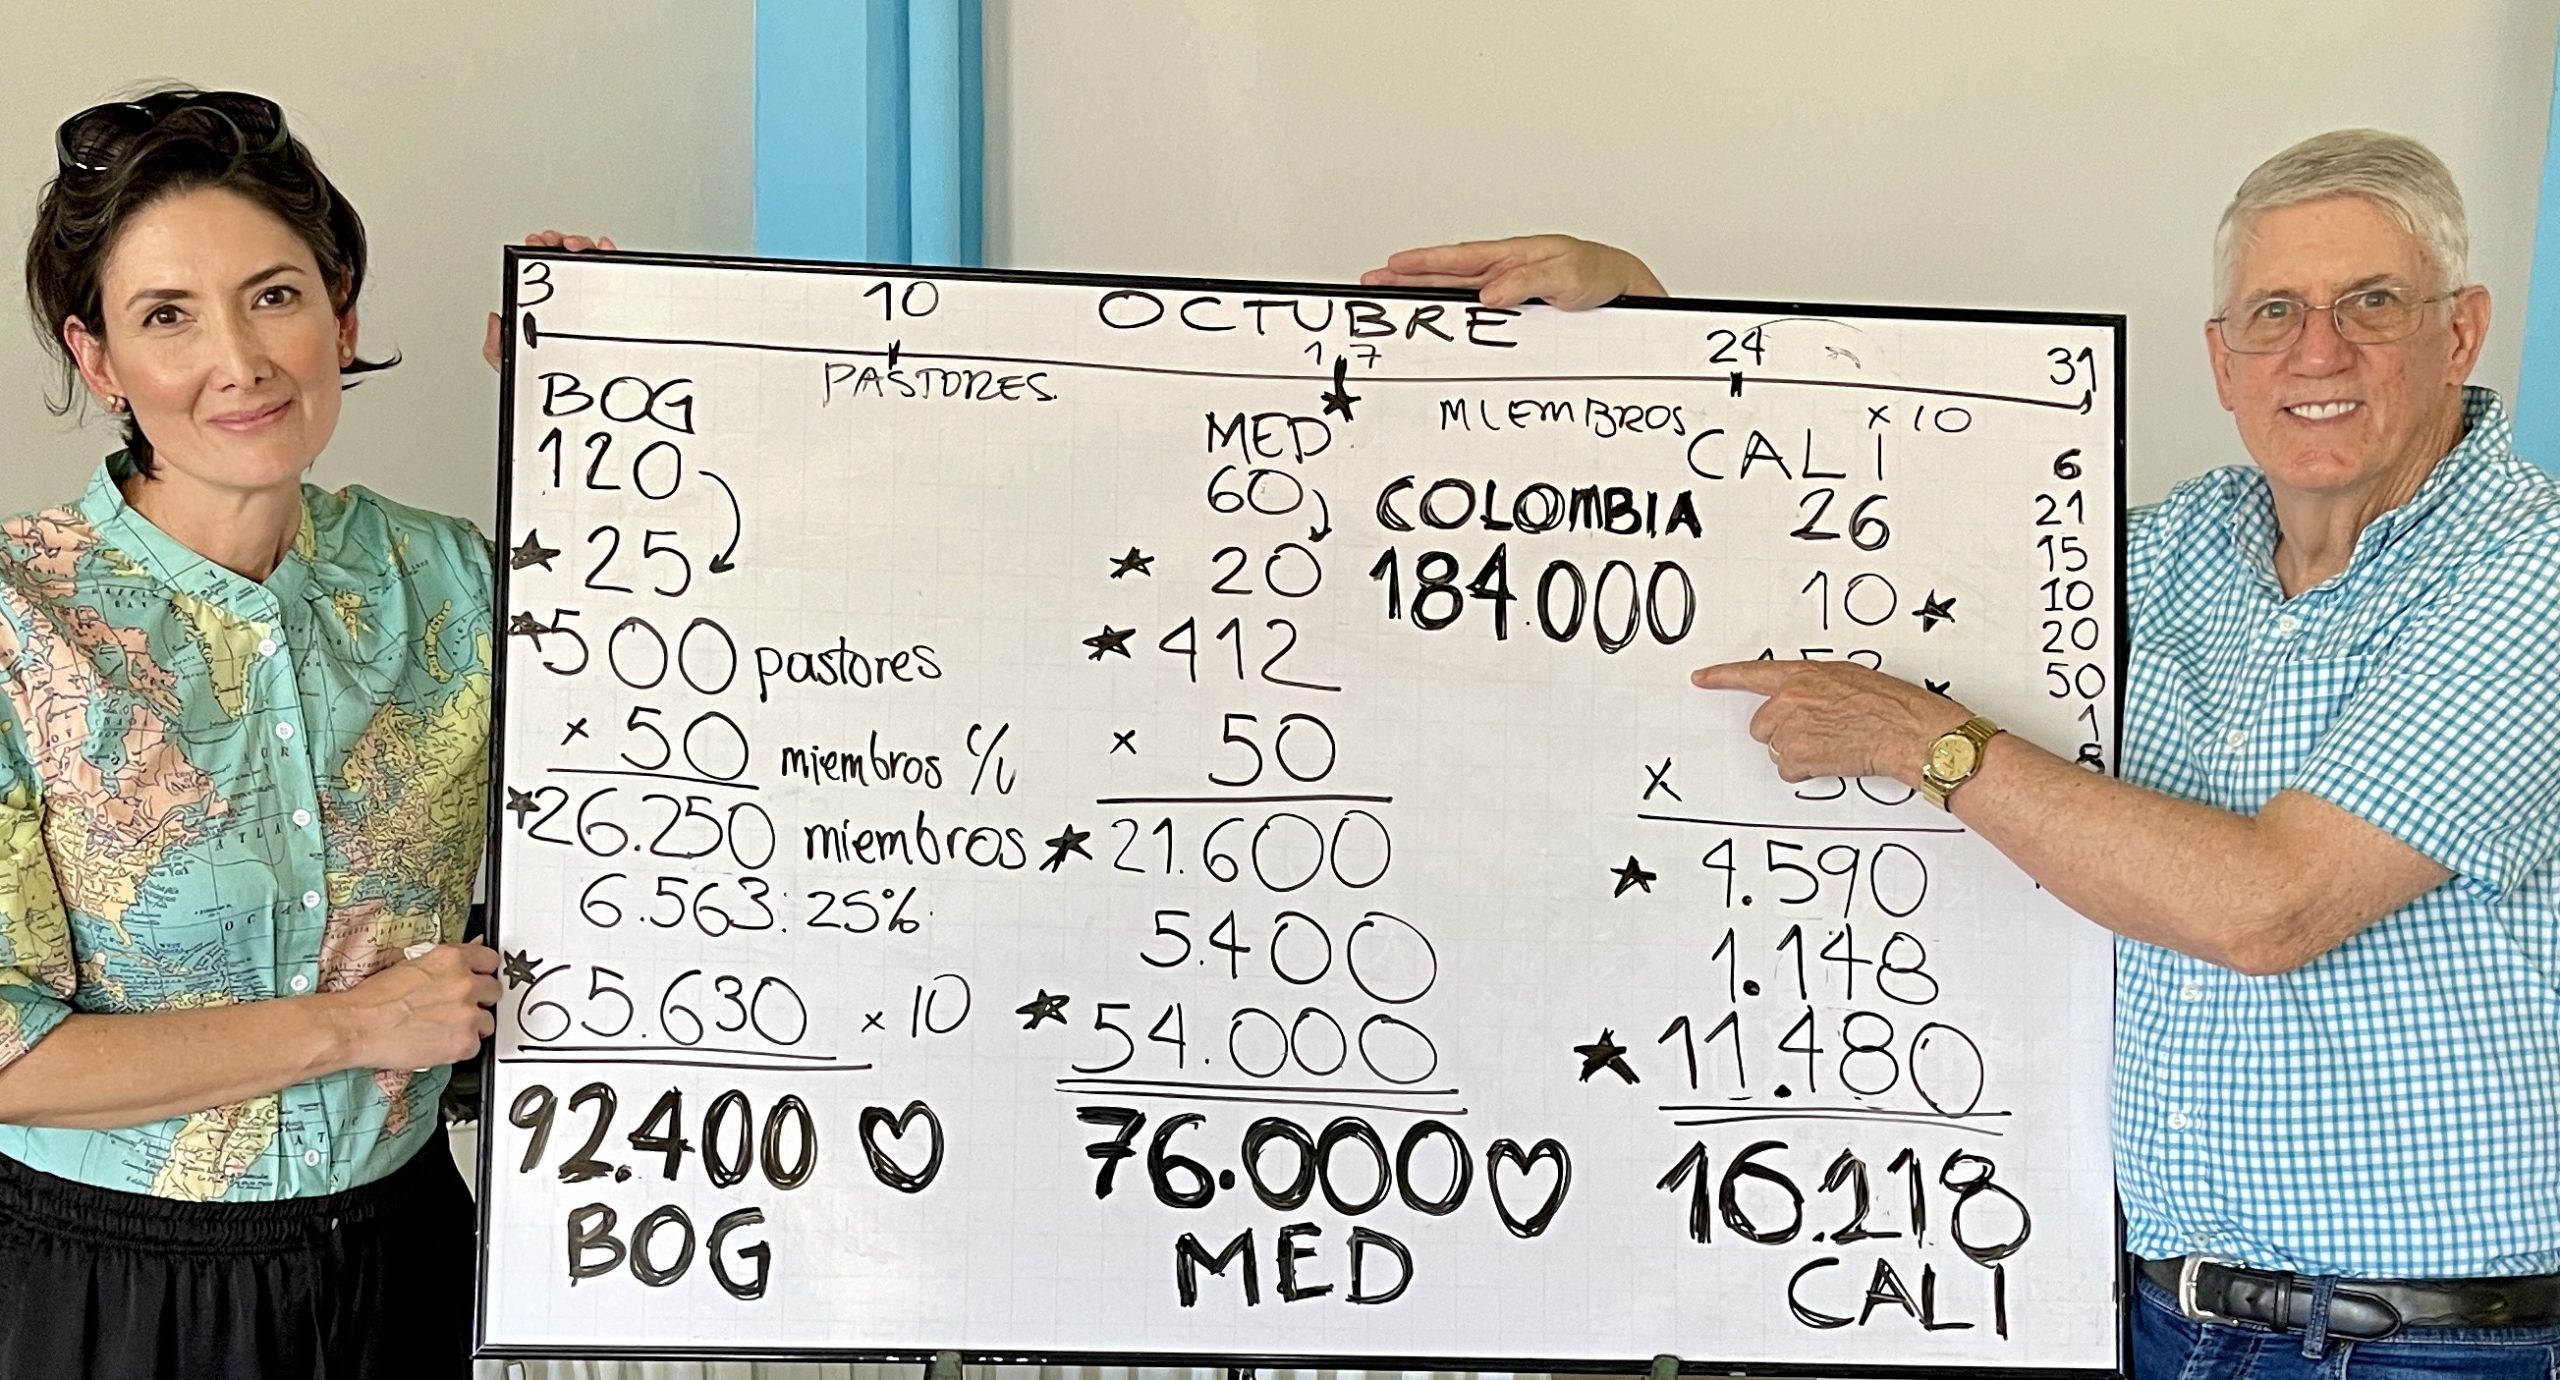 3 10 OCTUBRE 17 24 31
PASTORES.
MIEMBROS
x 10
BOG
120
★ 25
★ 500 pastores
x 50 miembros c/u
★ 26.250 miembros
6.563: 25%
★ 65.630 x 10
92.400 ♡
BOG
MED
60
★ 20
★ 412
x 50
★ 21.600
5.400
★ 54.000
76.000 ♡
MED
COLOMBIA
184.000
CALI
26
10 ★
x 50
★ 4.590
1.148
★ 11.480
16.218
CALI
6
21
15
10
20
50
1
8